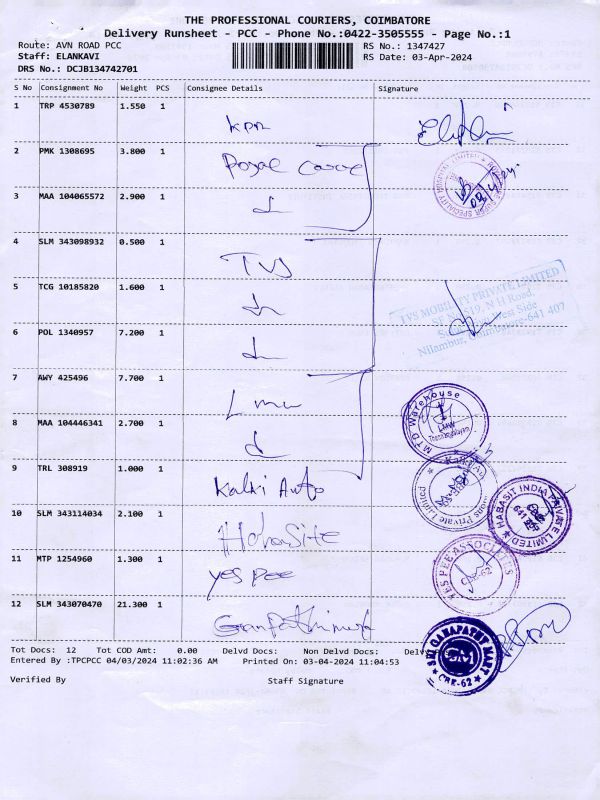 THE PROFESSIONAL COURIERS, COIMBATORE
Delivery Runsheet - PCC - Phone No.:0422-3505555 - Page No.:1
Route: AVN ROAD PCC RS No.: 1347427
Staff: ELANKAVI RS Date: 03-Apr-2024
DRS No.: DCJB134742701
S No Consignment No Weight PCS Consignee Details Signature
1 TRP 4530789 1.550 1 KPR
2 PMK 1308695 3.800 1 Royal
3 MAA 104065572 2.900 1
4 SLM 343098932 0.500 1 TVS
TVS MOBILITY PRIVATE LIMITED
5 TCG 10185820 1.600 1
Nilambur, Coimbatore-641 407
6 POL 1340957 7.200 1
7 AWY 425496 7.700 1 Lmw
MTD Warehouse
LMW
8 MAA 104446341 2.700 1
9 TRL 308919 1.000 1 Kalki Auto
Private Limited
10 SLM 343114034 2.100 1 Habasite
HABASIT INDIA PRIVATE LIMITED
11 MTP 1254960 1.300 1 yes pee
YES PEE ASSOCIATES
CBE-62
12 SLM 343070470 21.300 1
SRI GANAPATHY MART
CBE-62
Tot Docs: 12 Tot COD Amt: 0.00 Delvd Docs: Non Delvd Docs:
Entered By :TPCPCC 04/03/2024 11:02:36 AM Printed On: 03-04-2024 11:04:53
Verified By Staff Signature